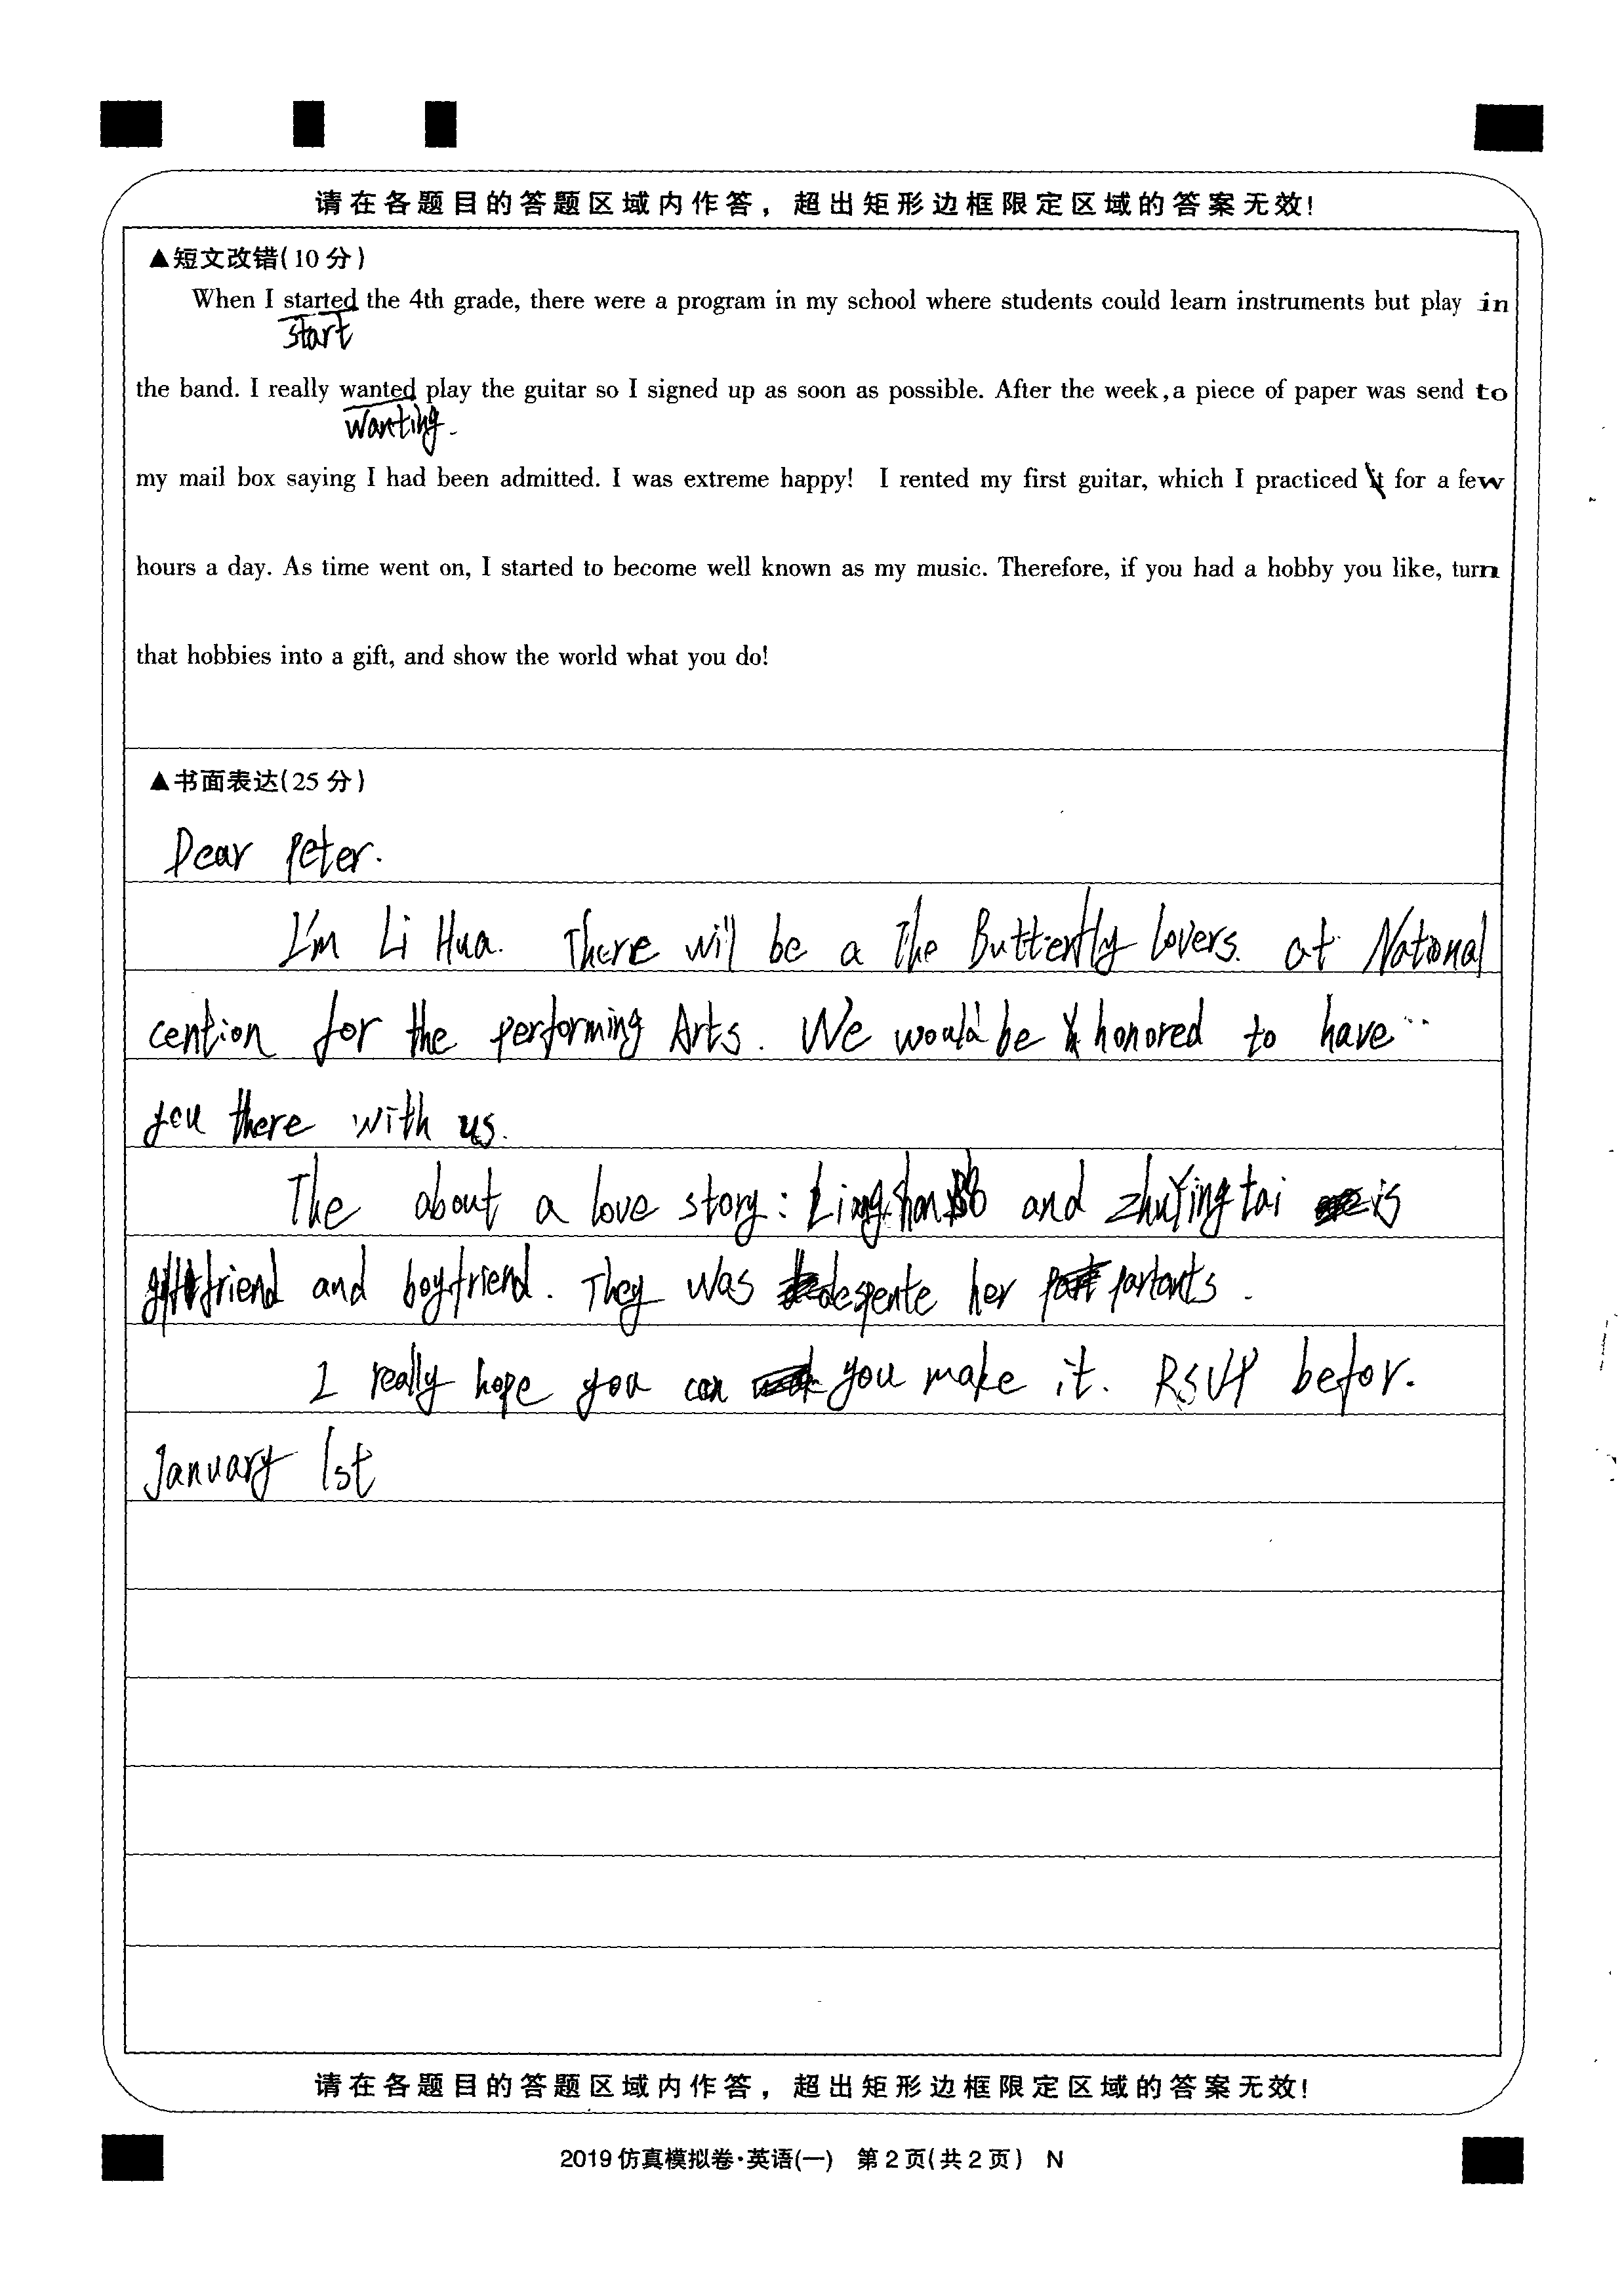 请在各题目的答题区域内作答，超出矩形边框限定区域的答案无效!
▲短文改错(10分)
When I started the 4th grade, there were a program in my school where students could learn instruments but play in
start
the band. I really wanted play the guitar so I signed up as soon as possible. After the week,a piece of paper was send to
wanting.
my mail box saying I had been admitted. I was extreme happy! I rented my first guitar, which I practiced it for a few
hours a day. As time went on, I started to become well known as my music. Therefore, if you had a hobby you like, turn
that hobbies into a gift, and show the world what you do!
▲书面表达(25分)
Dear Peter.
I'm Li Hua. There will be a The Butterfly Lovers. at National
cention for the performing Arts. We would be honored to have
you there with us.
The about a love story: Liang and ZhuYingtai is
friend and boyfriend. They was despente her partants.
I really hope you can you make it. RSVP befor.
January 1st
请在各题目的答题区域内作答，超出矩形边框限定区域的答案无效!
2019仿真模拟卷·英语(一) 第2页(共2页) N